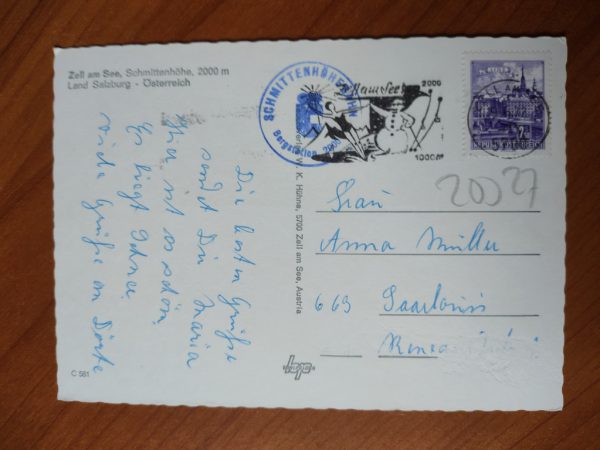 Zell am See, Schmittenhöhe, 2000 m
Land Salzburg - Österreich
SCHMITTENHÖHEBAHN
Bergstation 2000
Zell am See
2000
1000
REPUBLIK ÖSTERREICH
20527
Die besten Grüße
sendet Dir Maria
Hier ist es schön
Es liegt Schnee
viele Grüße an Dörte
Verlag W. K. Hühne, 5700 Zell am See, Austria
Frau
Anna Müller
663 Saarlouis
C 581